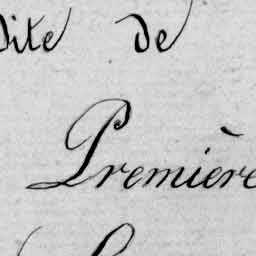 dite de
Première